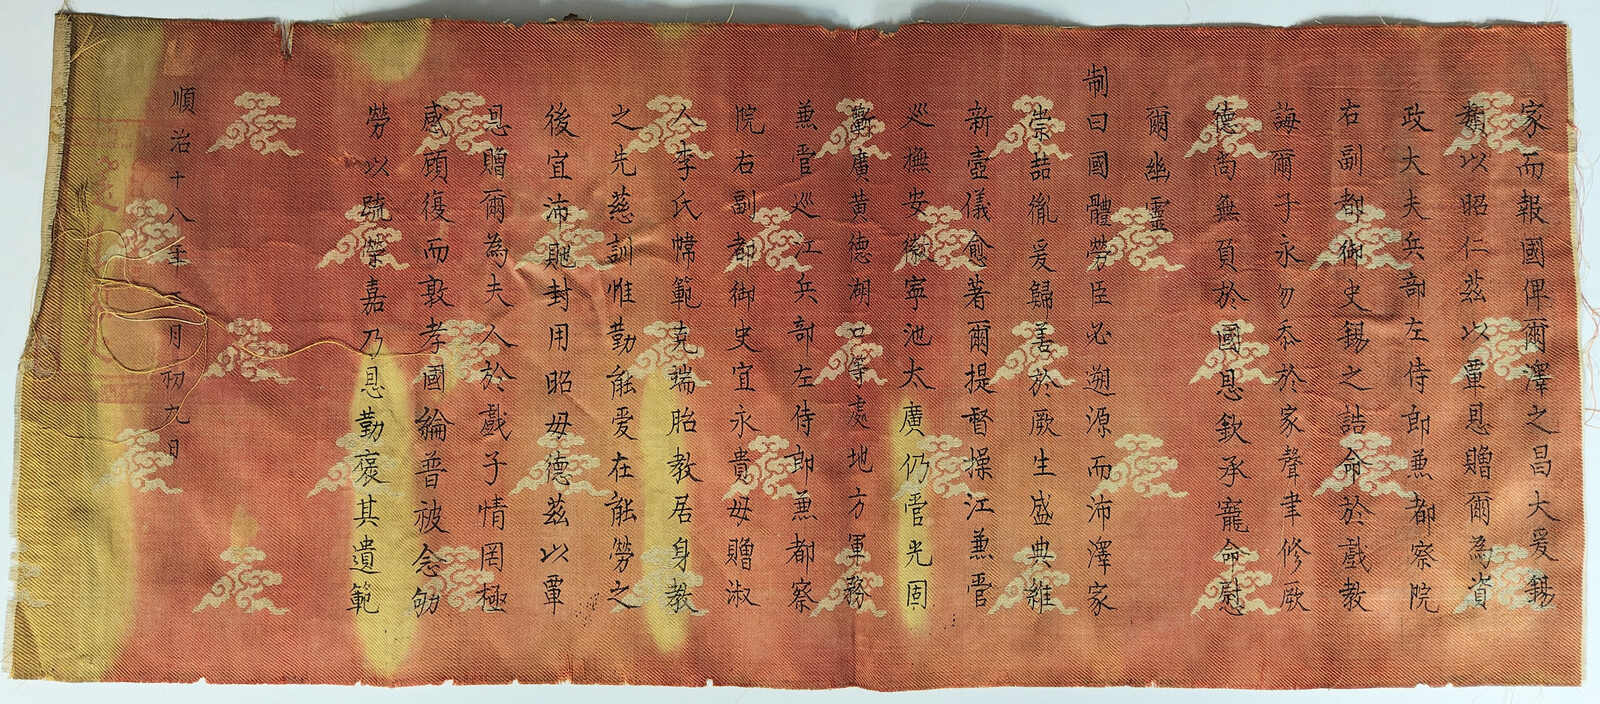 家而報國俾爾澤之昌大爰錫
類以昭仁茲以覃恩贈爾為資
政大夫兵部左侍郎兼都察院
右副都御史錫之誥命於戲教
誨爾子永勿忝於家聲聿修厥
德尚無負於國恩欽承寵命慰
爾幽靈
制曰國體勞臣必遡源而沛澤家
崇喆胤爰歸善於厥生盛典維
新壼儀愈著爾提督操江兼管
巡撫安徽寧池太廣仍管光固
蘄廣黃德湖口等處地方軍務
兼管巡江兵部左侍郎兼都察
院右副都御史宜永貴母贈淑
人李氏幃範克端胎教居身教
之先慈訓惟勤能爱在能勞之
後宜沛貤封用昭毋德茲以覃
恩贈爾為夫人於戲子情罔極
感顧復而敦孝國綸普被念劬
勞以疏榮嘉乃恩勤褒其遺範
順治十八年 月初九日